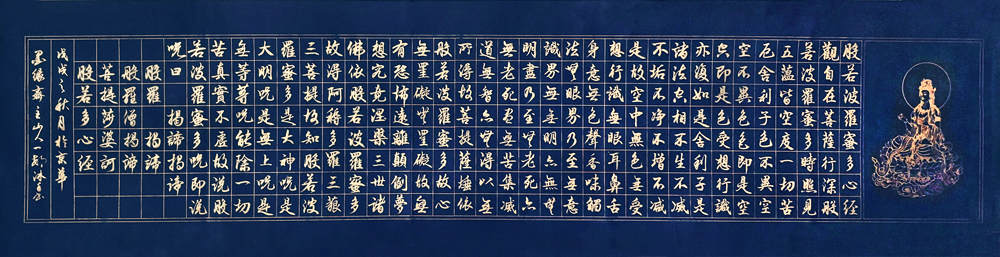 般若波羅蜜多心經
觀自在菩薩行深般
若波羅蜜多時照見
五蘊皆空度一切苦
厄舍利子色不異空
空不異色色即是空
空即是色受想行識
亦復如是舍利子是
諸法空相不生不滅
不垢不淨不增不減
是故空中無色無受
想行識無眼耳鼻舌
身意無色聲香味觸
法無眼界乃至無意
識界無無明亦無無
明盡乃至無老死亦
無老死盡無苦集滅
道無智亦無得以無
所得故菩提薩埵依
般若波羅蜜多故心
無罣礙無罣礙故無
有恐怖遠離顛倒夢
想究竟涅槃三世諸
佛依般若波羅蜜多
故得阿耨多羅三藐
三菩提故知般若波
羅蜜多是大神咒是
大明咒是無上咒是
無等等咒能除一切
苦真實不虛故說般
若波羅蜜多咒即說
咒曰 揭諦揭諦
般羅 揭諦
般羅僧揭諦
菩提娑訶
般若多心經
戊戌之秋月於京華
墨緣齋主山人